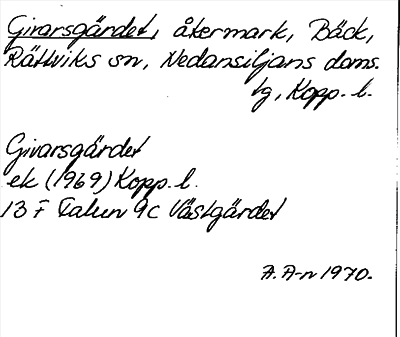 Givarsgärdet, åkermark, Bäck,
Rättviks sn, Nedansiljans doms.
tg, Kopp. l.
Givarsgärdet
ek (1969) Kopp. l.
13 F Falun 9c Västgärdet
A. A-n 1970.